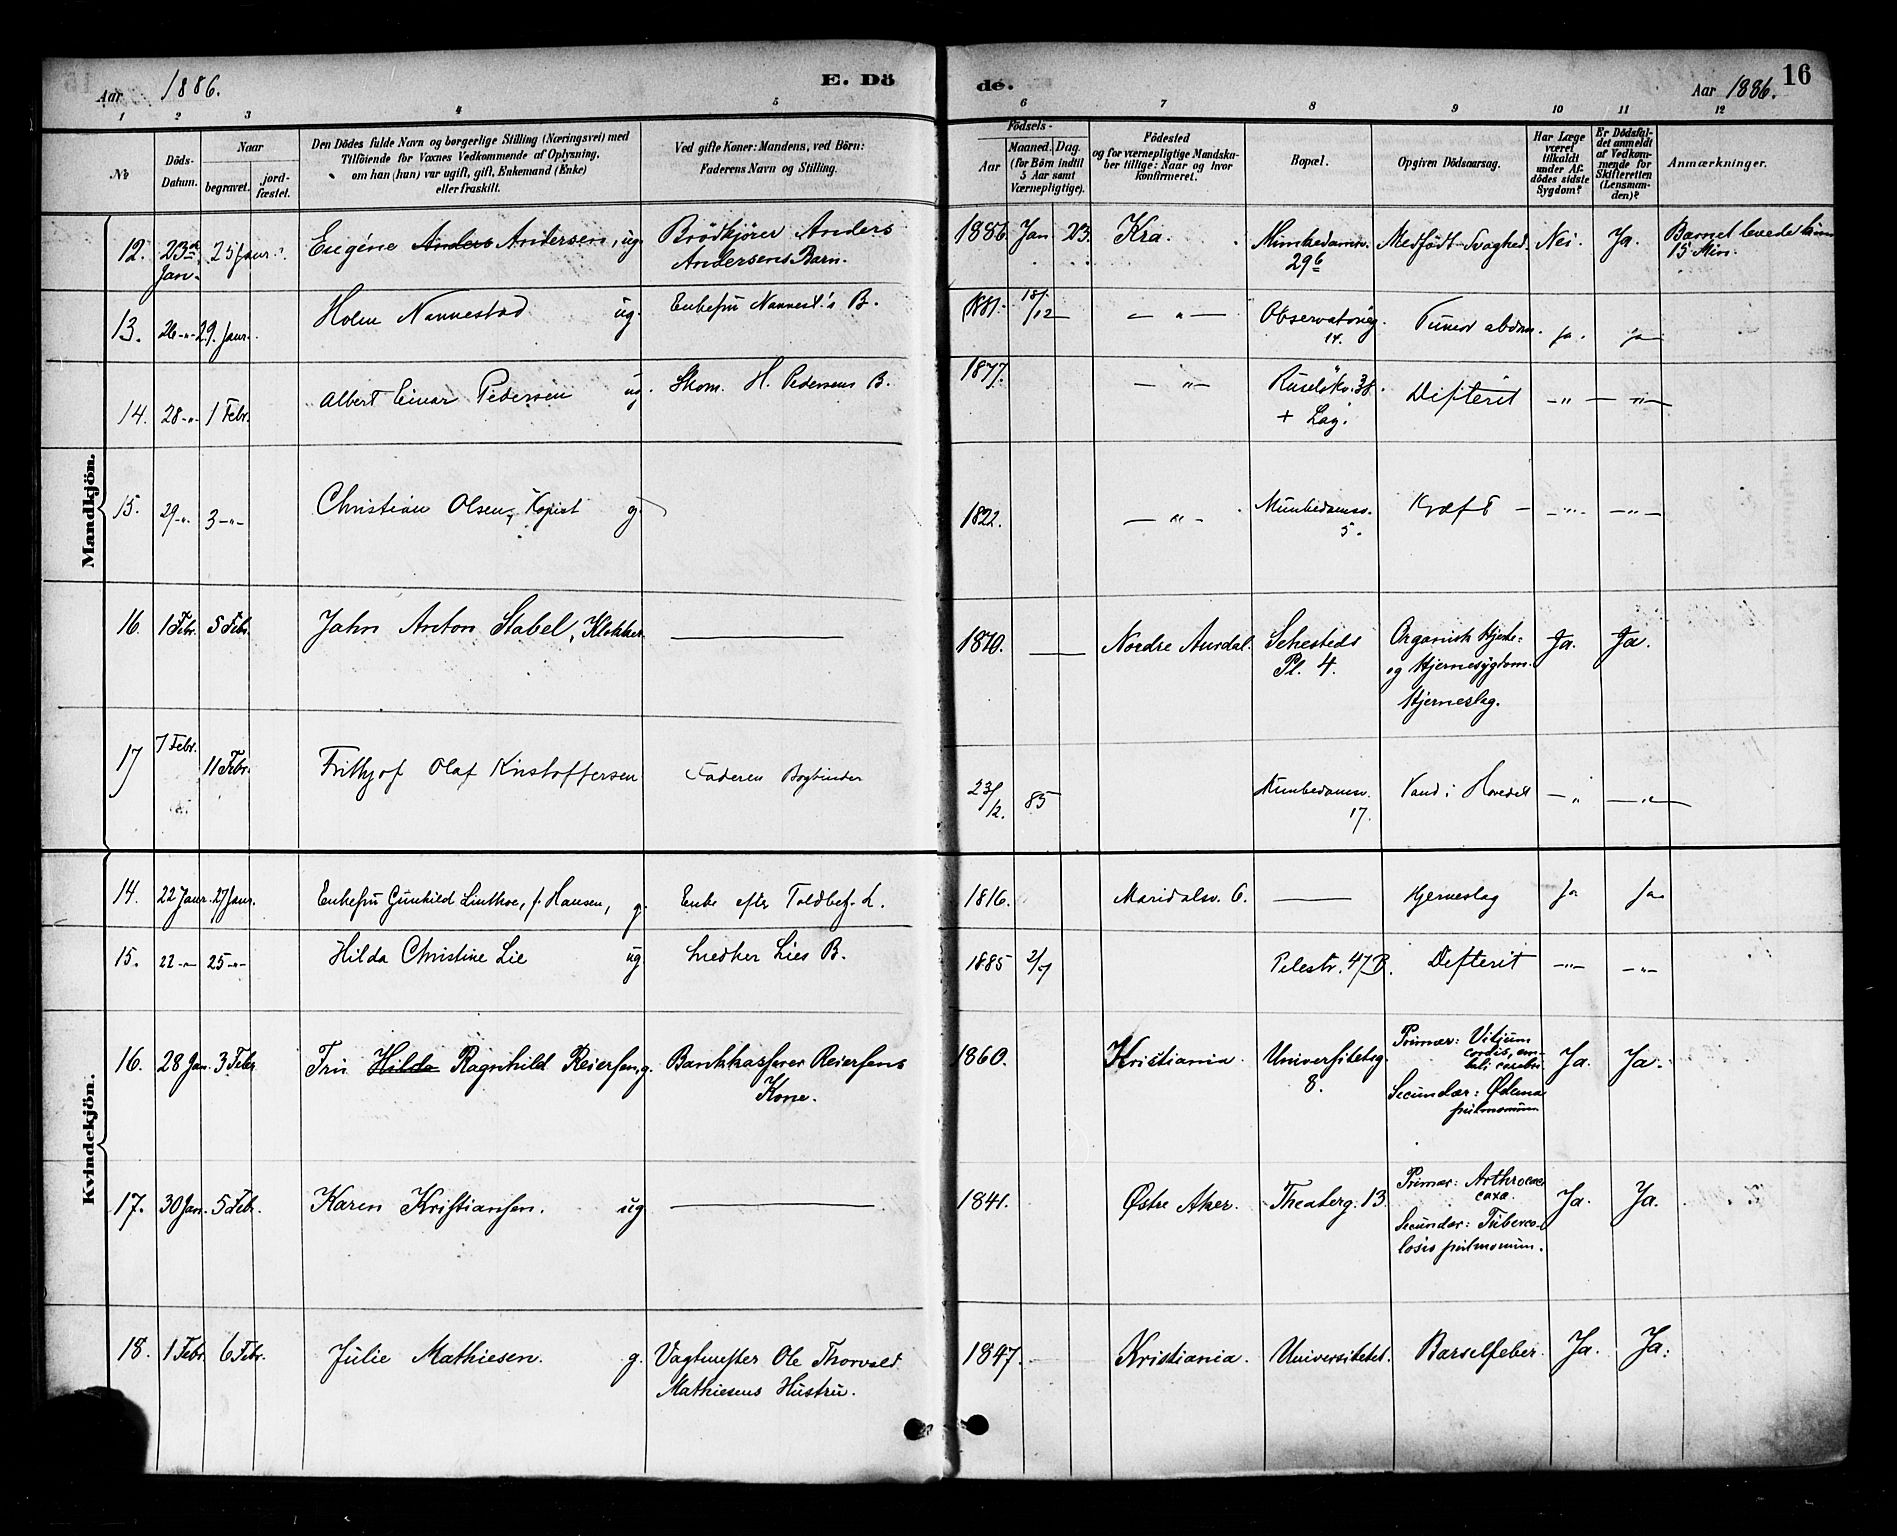 Aar 1886.
E. Dö
de.
Aar 1886.
16
1 2 3 4 5 6 7 8 9 10 11 12
No
Döds-Datum.
Naar
begravet.
jord-fæstet.
Den Dödes fulde Navn og borgerlige Stilling (Næringsvei) med
Tilföiende for Voxnes Vedkommende af Oplysning,
om han (hun) var ugift, gift, Enkemand (Enke)
eller fraskilt.
Ved gifte Koner: Mandens, ved Börn:
Faderens Navn og Stilling.
Födsels-
Aar
Maaned. Dag.
(for Børn indtil
5 Aar samt
Værnepligtige).
Födested
og for værnepligtige Mandska-
ber tillige: Naar og hvor
konfirmeret.
Bopæl.
Opgiven Dödsaarsag.
Har Læge
været
tilkaldt
under Af-
dödes sidste
Sygdom?
Er Dödsfal-
det anmeldt
af Vedkom-
mende for
Skifteretten
(Lensman-
den)?
Anmærkninger.
Mandkjön.
12. 23de Jan. 25 Janr. Eugéne Anders Andersen, ug. Brödkjörer Anders Andersens Barn. 1886 Jan 23. Kra. Munkedamv. 29b Medfödt Svaghed. Nei. Ja. Barnet levede kun 15 Min.
13. 26 -"- 29. Janr. Holm Nannestad ug. Enkefru Nannest.'s B. 1881. 18/12 — " — Observatorieg. 14. Tumor abdom. ja. ja
14. 28 -"- 1 Febr. Albert Einar Pedersen ug. Skom. H. Pedersens B. 1877. — " — Ruselökv. 38. + Lag. Difterit -"- -"-
15. 29 -"- 3 -"- Christian Olsen, Kopist g. 1822. — " — Munkedamsv. 5. Kræft -"- -"-
16. 1 Febr. 5 Febr. Jahn Anton Stabel, Klokker — 1810. — Nordre Aurdal. Sehesteds Pl. 4. Organisk Hjerte- og Hjernesygdom. Hjerneslag. Ja. Ja.
17 7 Febr. 11 Febr. Frithjof Olaf Kristoffersen Faderen Bogbinder 23/12. 85 Munkedamsv. 17. Vand i Hovedet -"- -"-
Kvindekjön.
14. 22 Janr. 27 Janr. Enkefru Gunhild Linthoe, f. Hansen, g. Enke efter Toldbetj. L. 1816. Maridalsv. 6. — Hjerneslag ja ja
15. 22 -"- 25 -"- Hilda Christine Lie ug Snedker Lies B. 1885 2/7 Pilestr. 47 B. Defterit -"- -"-
16. 28 Jan. 3 Febr Fru Hilda Ragnhild Reiersen, g. Bankkasserer Reiersens Kone. 1860. Kristiania. Universitetsg. 8. Primær: Vitium cordis, emboli cerebri. Secundær: Ødema pulmonum Ja. Ja.
17. 30 Jan. 5 Febr. Karen Kristiansen. ug — 1841. Østre Aker. Theaterg. 13. Primær: Arthrocace coxa. Secundær: Tuberco-losis pulmonum. Ja. Ja.
18. 1 Febr. 6 Febr. Julie Mathiesen. g. Vagtmester Ole Thorvald Mathiesens Hustru. 1847. Kristiania. Universitetet. Barselfeber. Ja. Ja.